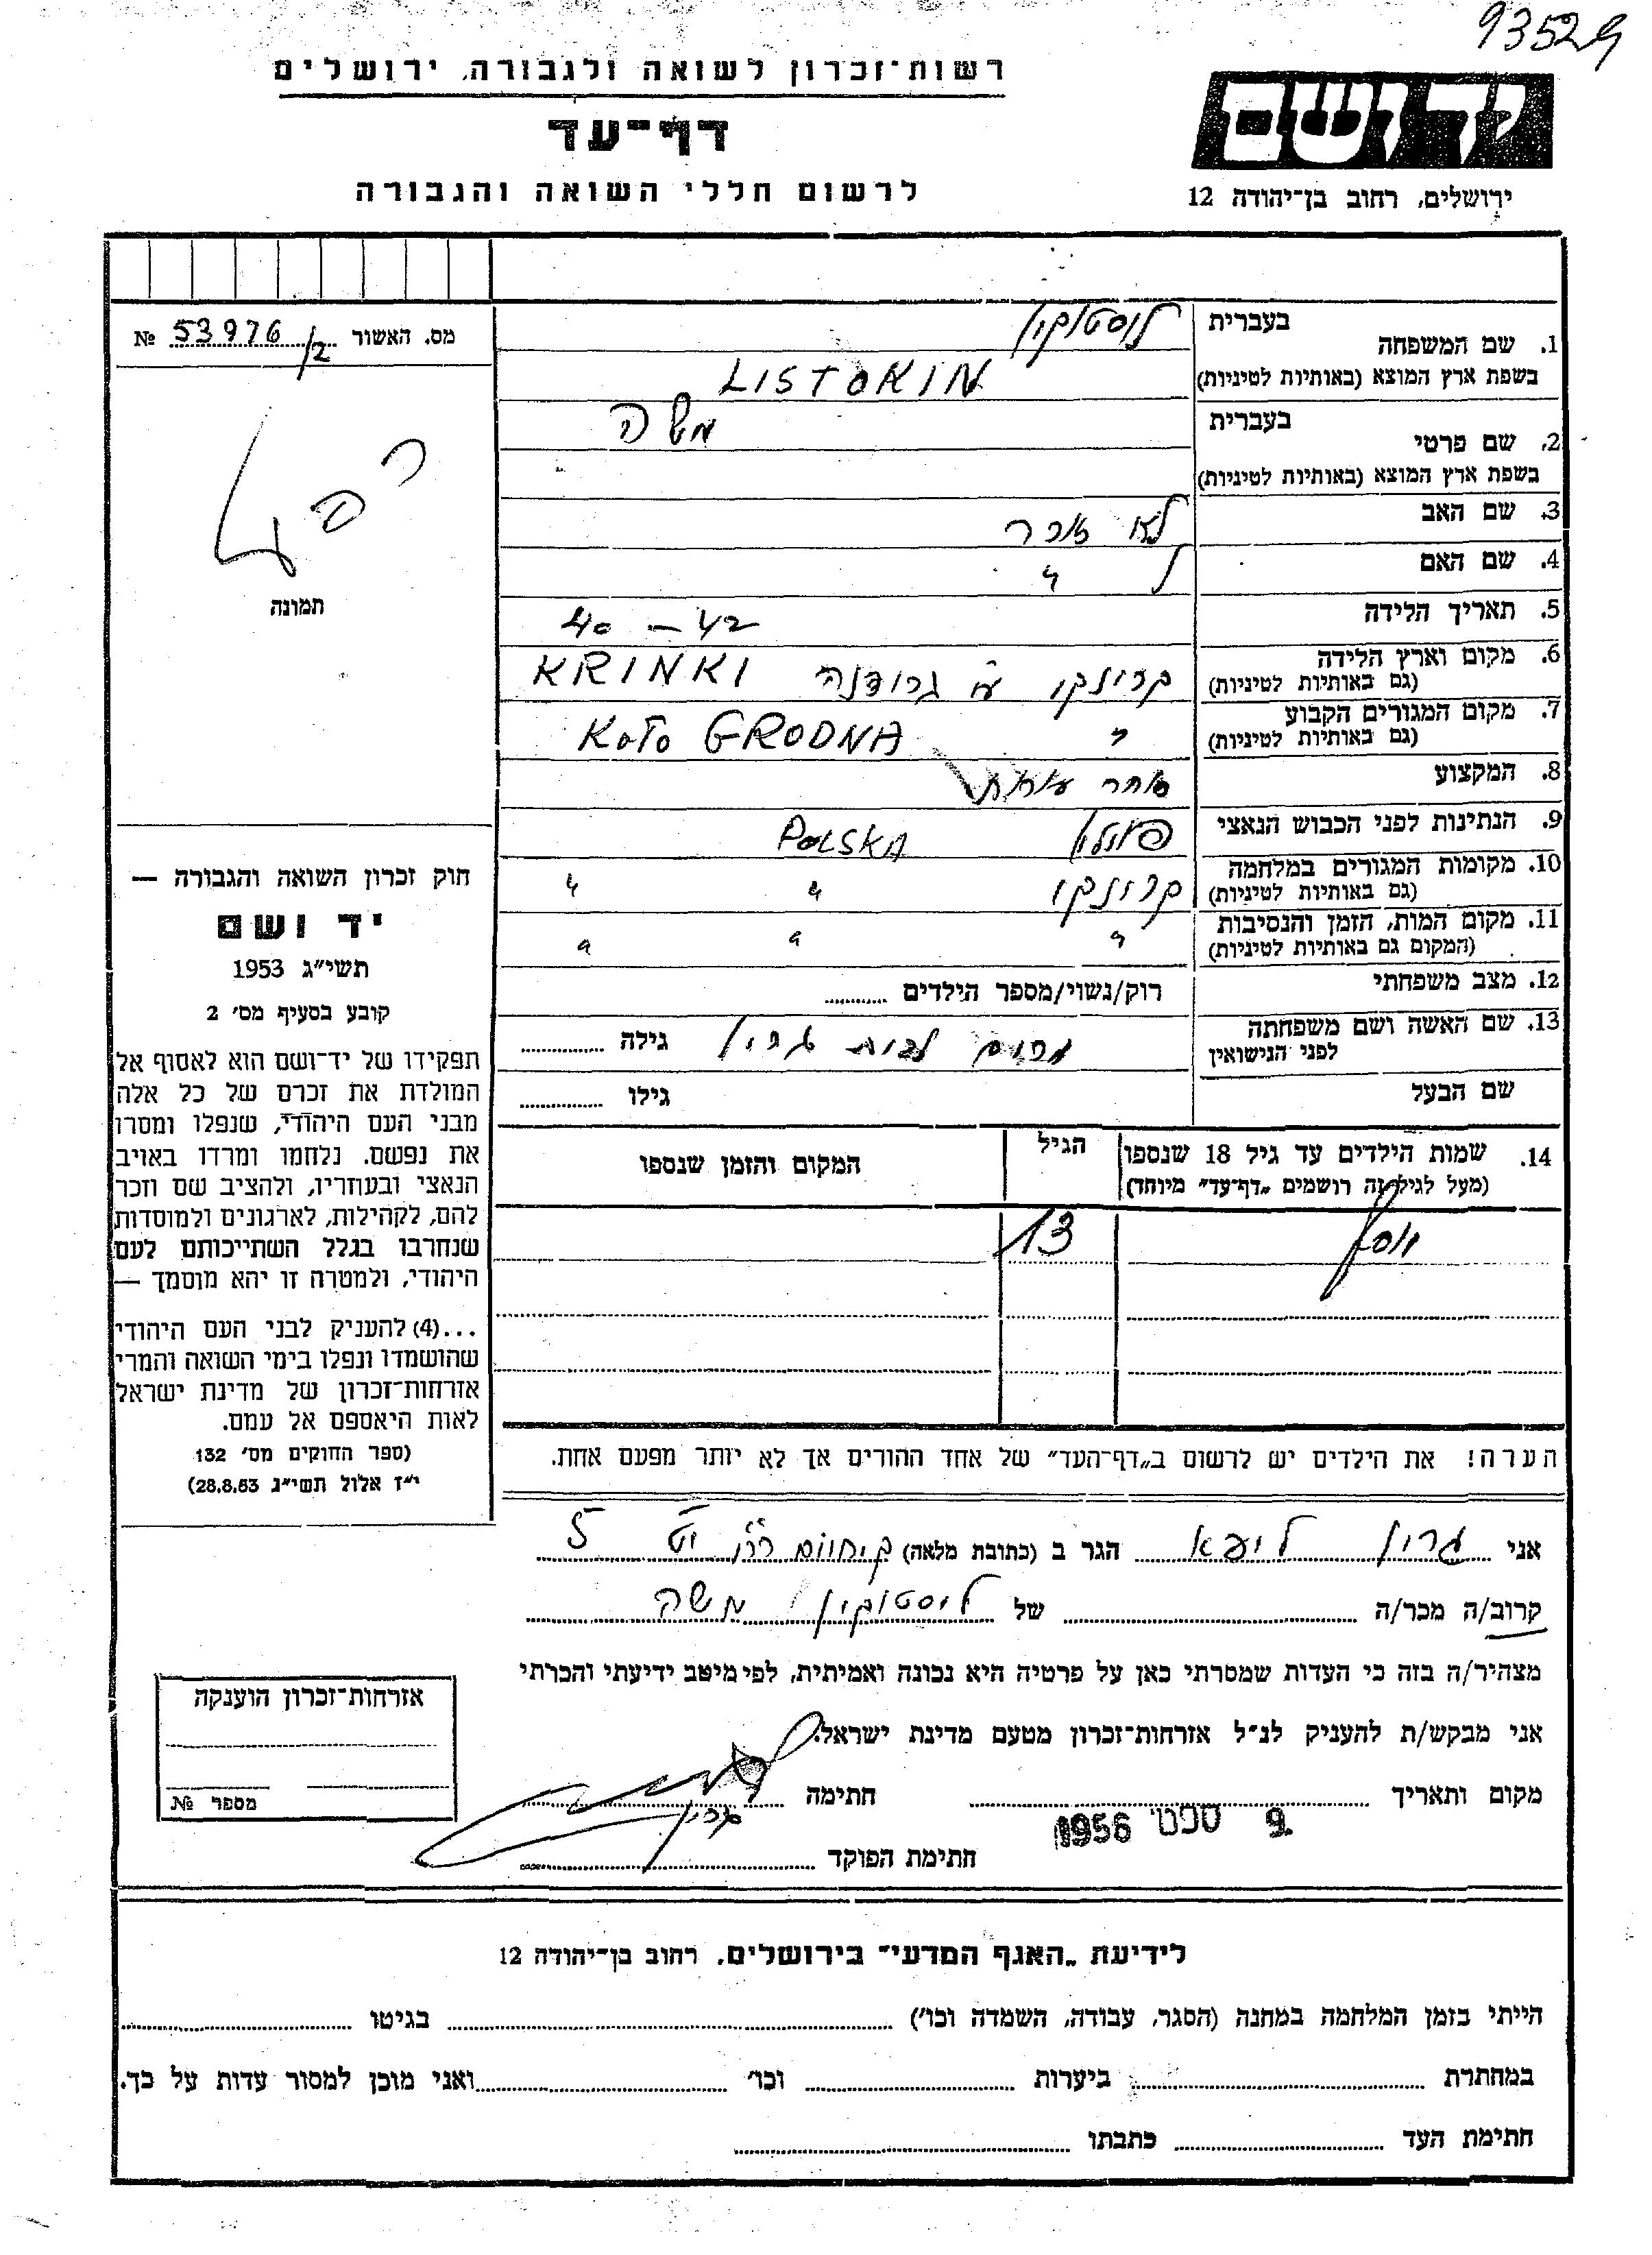 93529
רשות־זכרון לשואה ולגבורה, ירושלים
יד ושם
דף־עד
ירושלים, רחוב בן־יהודה 12
לרשום חללי השואה והגבורה
מס. האשור 53976/2 №
תמונה
1. שם המשפחה
בעברית ליסטוקין
בשפת ארץ המוצא (באותיות לטיניות) LISTOKIN
2. שם פרטי
בעברית משה
בשפת ארץ המוצא (באותיות לטיניות)
3. שם האב לא זוכר
4. שם האם ל "
5. תאריך הלידה 40 – 42
6. מקום וארץ הלידה
(גם באותיות לטיניות) קרינקי ע"י גרודנה KRINKI
7. מקום המגורים הקבוע
(גם באותיות לטיניות) " KoŁo GRODNA
8. המקצוע סוחר
9. הנתינות לפני הכבוש הנאצי פולין POLSKA
10. מקומות המגורים במלחמה
(גם באותיות לטיניות) קרינקי " "
11. מקום המות, הזמן והנסיבות
(המקום גם באותיות לטיניות) " " "
12. מצב משפחתי רוק/נשוי/מספר הילדים
13. שם האשה ושם משפחתה
לפני הנישואין מרים לבית גרין גילה
שם הבעל גילו
14. שמות הילדים עד גיל 18 שנספו
(מעל לגיל זה רושמים „דף־עד" מיוחד)
הגיל
המקום והזמן שנספו
יוסף 13
חוק זכרון השואה והגבורה —
יד ושם
תשי"ג 1953
קובע בסעיף מס' 2
תפקידו של יד־ושם הוא לאסוף אל
המולדת את זכרם של כל אלה
מבני העם היהודי, שנפלו ומסרו
את נפשם. נלחמו ומרדו באויב
הנאצי ובעוזריו, ולהציב שם וזכר
להם, לקהילות, לארגונים ולמוסדות
שנחרבו בגלל השתייכותם לעם
היהודי, ולמטרה זו יהא מוסמך —
...(4) להעניק לבני העם היהודי
שהושמדו ונפלו בימי השואה והמרי
אזרחות־זכרון של מדינת ישראל
לאות היאספם אל עמם.
(ספר החוקים מס' 132
י"ז אלול תשי"ג 28.8.53)
הערה! את הילדים יש לרשום ב„דף־העד" של אחד ההורים אך לא יותר מפעם אחת.
אני גרין ליפא הגר ב (כתובת מלאה) 5
קרוב/ה מכר/ה של ליסטוקין משה
מצהיר/ה בזה כי העדות שמסרתי כאן על פרטיה היא נכונה ואמיתית, לפי מיטב ידיעתי והכרתי
אני מבקש/ת להעניק לנ"ל אזרחות־זכרון מטעם מדינת ישראל.
מקום ותאריך 9. ספט' 1956 חתימה גרין
חתימת הפוקד
אזרחות־זכרון הוענקה
מספר №
לידיעת „האגף המדעי" בירושלים, רחוב בן־יהודה 12
הייתי בזמן המלחמה במחנה (הסגר, עבודה, השמדה וכו') בגיטו
במחתרת ביערות וכו' ואני מוכן למסור עדות על כך.
חתימת העד כתבתו